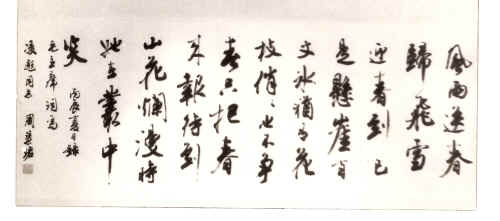 風雨送春
歸飛雪
迎春到已
是懸崖百
丈冰猶有花
枝俏〻也不争
春只把春
来報待到
山花爛漫時
她在叢中
笑
丙辰夏日録
毛主席詞為
同志 周慧珺